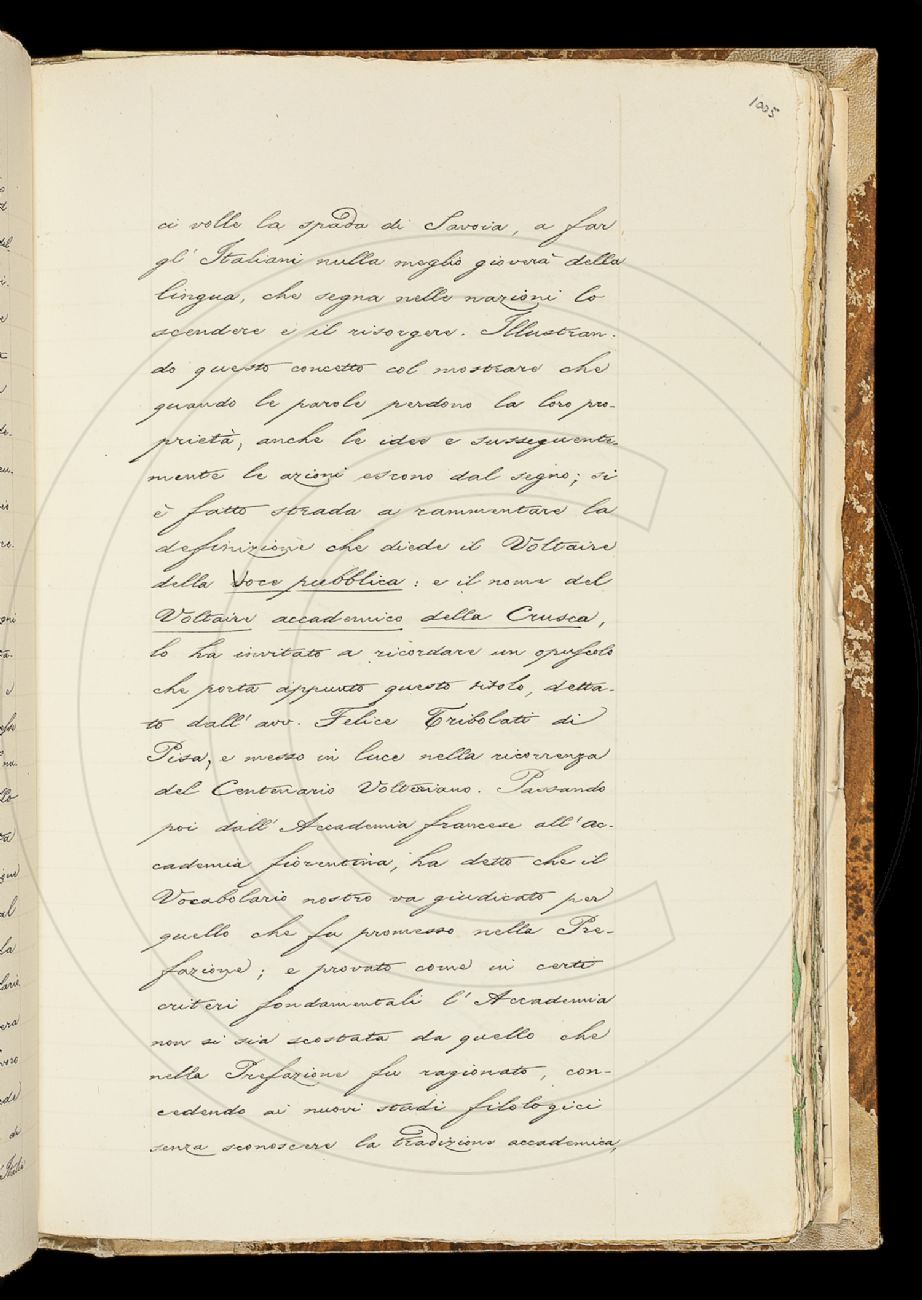 1005
ci volle la spada di Savoia, a far
gl' Italiani nulla meglio gioverà della
lingua, che segna nelle nazioni lo
scendere e il risorgere. Illustran-
do questo concetto col mostrare che
quando le parole perdono la loro pro-
prietà, anche le idee e susseguente-
mente le azioni escono dal segno; si
è fatto strada a rammentare la
definizione che diede il Voltaire
della Voce pubblica: e il nome del
Voltaire accademico della Crusca,
lo ha invitato a ricordare un opuscolo
che porta appunto questo titolo, detta-
to dall' avv. Felice Tribolati di
Pisa, e messo in luce nella ricorrenza
del Centenario Volteriano. Passando
poi dall' Accademia francese all' Ac-
cademia fiorentina, ha detto che il
Vocabolario nostro va giudicato per
quello che fu promesso nella Pre-
fazione; e provato come in certi
criteri fondamentali l' Accademia
non si sia scostata da quello che
nella Prefazione fu ragionato, con-
cedendo ai nuovi studi filologici
senza sconoscere la tradizione accademica,